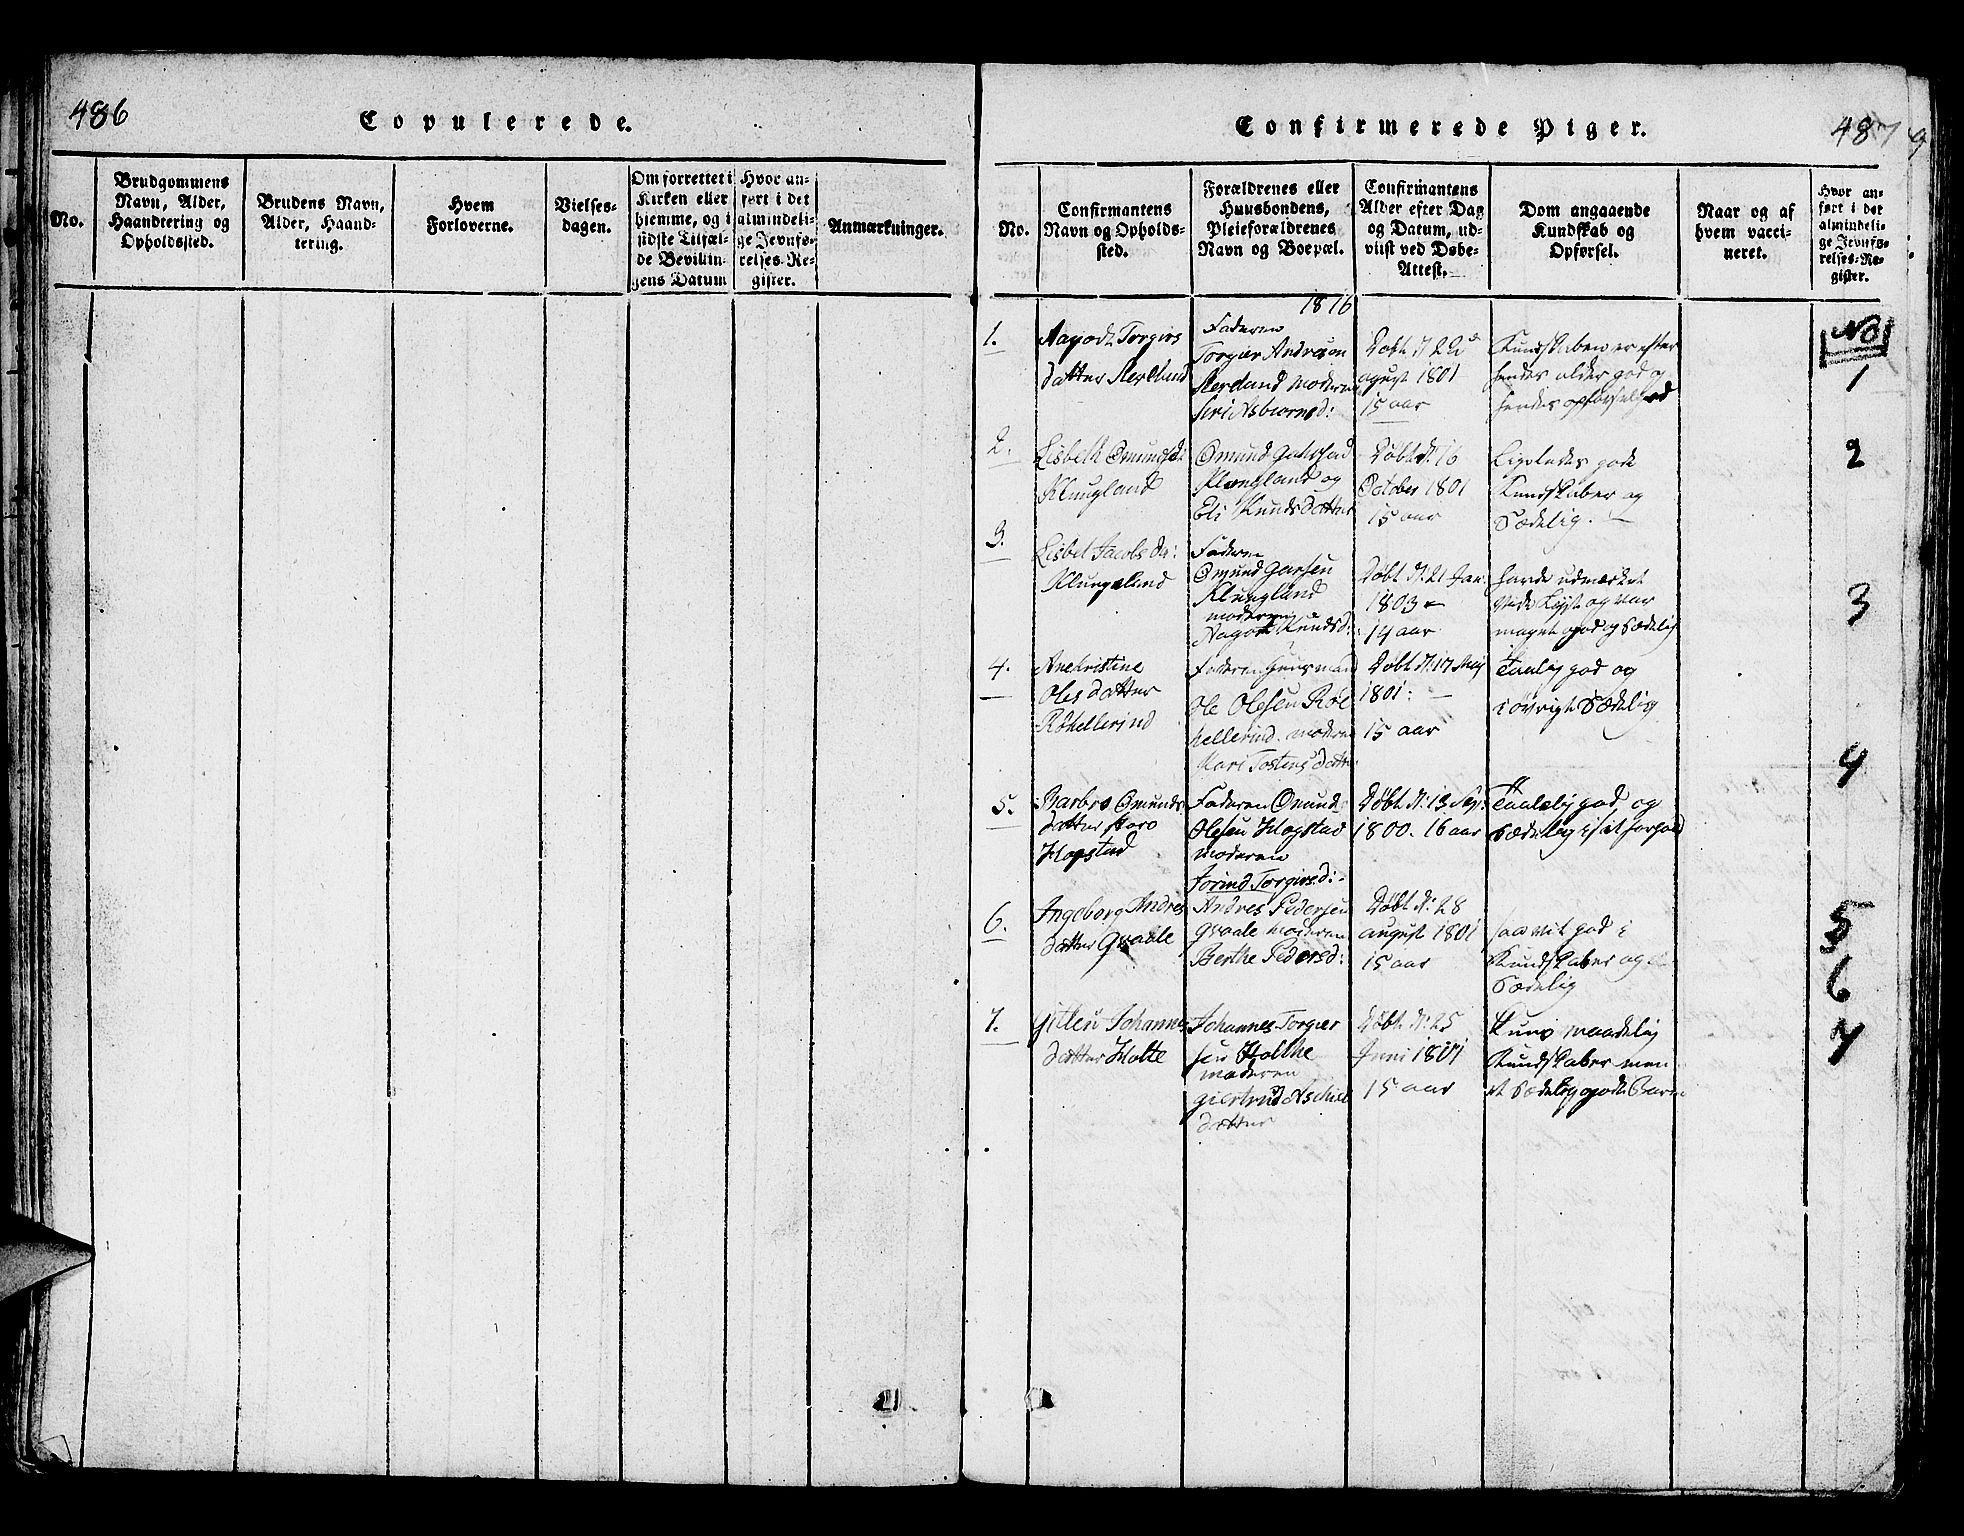 486
Copulerede.
No.
Brudgommens
Navn, Alder,
Haandtering og
Opholdssted.
Brudens Navn,
Alder, Haand-
tering.
Hvem
Forloverne.
Vielses-
dagen.
Om forrettet i
Kirken eller
hiemme, og i
sidste Tilfæl-
de Bevilin-
gens Datum
Hvor an-
ført i det
almindeli-
ge Jevnfø-
relses-Re-
gister.
Anmærkninger.
21
Confirmerede Piger.
487
9
No.
Confirmantens
Navn og Opholds-
sted.
Forældrenes eller
Huusbondens,
Pleieforældrenes
Navn og Boepæl.
Confirmantens
Alder efter Dag
og Datum, ud-
viist ved Døbe-
Attest.
Dom angaaende
Kundskab og
Opførsel.
Naar og af
hvem vacci-
neret.
Hvor an-
ført i det
almindeli-
ge Jevnfø-
relses-Re-
gister.
1816
No
1.
Torgirs
datter
Faderen
Torgier Andresen
moderen
Siri Asbiørnsd:
Døbt d: 22d
agust 1801
15 aar
Kundskaben er efter
hendes alder god og
hendes opførsel god
1
2.
Lisbeth Omundsd:
Klungland
Omund
Klungland og
Eli Knudsdatter
Døbt d: 16
October 1801
15 aar
Ligeledes gode
Kundskaber og
Sædelig.
2
3.
Lisbet Jacobsda:
Klungeland
Faderen
Omund
Klungland
moderen
Knudsd:
Døbt d: 21 Jan:
1803
14 aar
havde udmærket
vide Lyst og var
meget god og Sædelig
3
4.
Anekristine
Olesdatter
Røhellerind
Faderen Huusmand
Ole Olesen Røe
hellerind. moderen
Kari Tostensdatter
Døbt d: 17 Maj
1801:
15 aar
Taalig god og
i øvrigt Sædelig
4
5.
Barbro Omunds
datter Store
Hogstad
Faderen Omund
Olesen Hogstad
moderen
Jorind Torgirsd:
Døbt d: 13 Sep:
1800. 16 aar
Taalelig god, og
Sædelig i sit forhold
5
6.
Ingeborg Andres
datter Qvaale
Andres Pedersen
Qvaale moderen
Berthe Pedersd:
Døbt d: 28
august 1801
15 aar
saavit god i
Kundskaber og
Sædelig
6
7.
Johannes
datter Holte
Johannes Torgier
sen Holthe
moderen
giertrud
datter
Døbt d: 25
Juni 1801
15 aar
Kuns maadelig
Kundskaber men
et Sædelig godt Barn
7